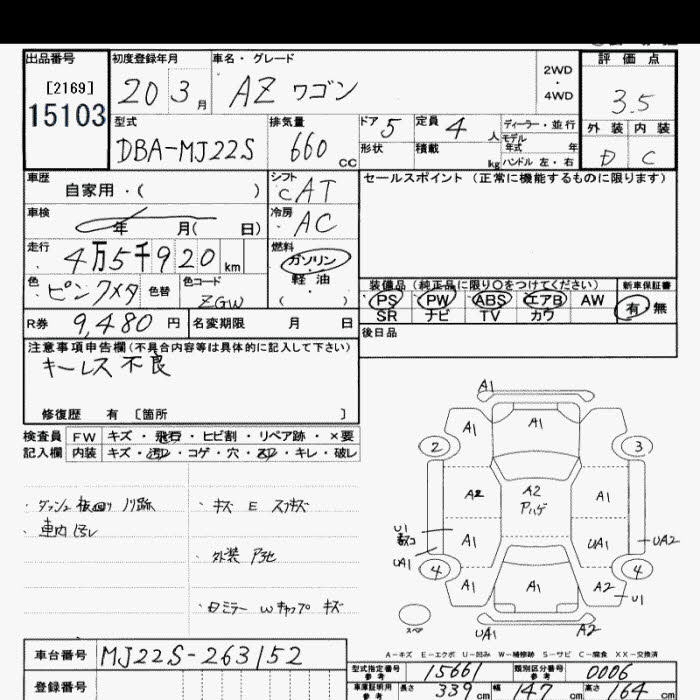 出品番号
[2169]
15103
初度登録年月
20 3月
車名・グレード
AZ ワゴン
2WD
・
4WD
評価点
3.5
外装 内装
D C
型式
DBA-MJ22S
排気量
660 cc
ドア 5
形状
定員 4 人
積載 kg
ディーラー・並行
モデル
年式 年
ハンドル 左・右
車歴
自家用・( )
シフト
CAT
セールスポイント (正常に機能するものに限ります)
車検
年 月( 日)
冷房
AC
走行
4万5千920 km
燃料
ガソリン
・
軽油
( )
色
ピンクメタ
色替
色コード
ZGW
装備品(純正品に限り○をつけてください)
PS PW ABS エアB AW
SR ナビ TV カワ
新車保証書
有・無
R券 9,480 円
名変期限 月 日
後日品
注意事項申告欄(不具合内容等は具体的に記入して下さい)
キーレス不良
修復歴 有 〔箇所 〕
検査員
記入欄
FW キズ・飛石・ヒビ割・リペア跡・×要
内装 キズ・汚レ・コゲ・穴・スレ・キレ・破レ
・車内汚レ
・キズ E スリキズ
・外装
キズ
A1
A1
A1
A1
2
3
A2
A2
A1
U1
A1
UA1
UA2
UA1
4
4
A1
A1
A2
U1
スペア
UA1
A2
A-キズ E-エクボ U-凹み W-補修跡 S-サビ C-腐食 XX-交換済
車台番号 MJ22S-263152
登録番号
型式指定番号
参考
15661
類別区分番号
参考
0006
車庫証明用
参考
長さ 339 cm
幅 147 cm
高さ 164 cm